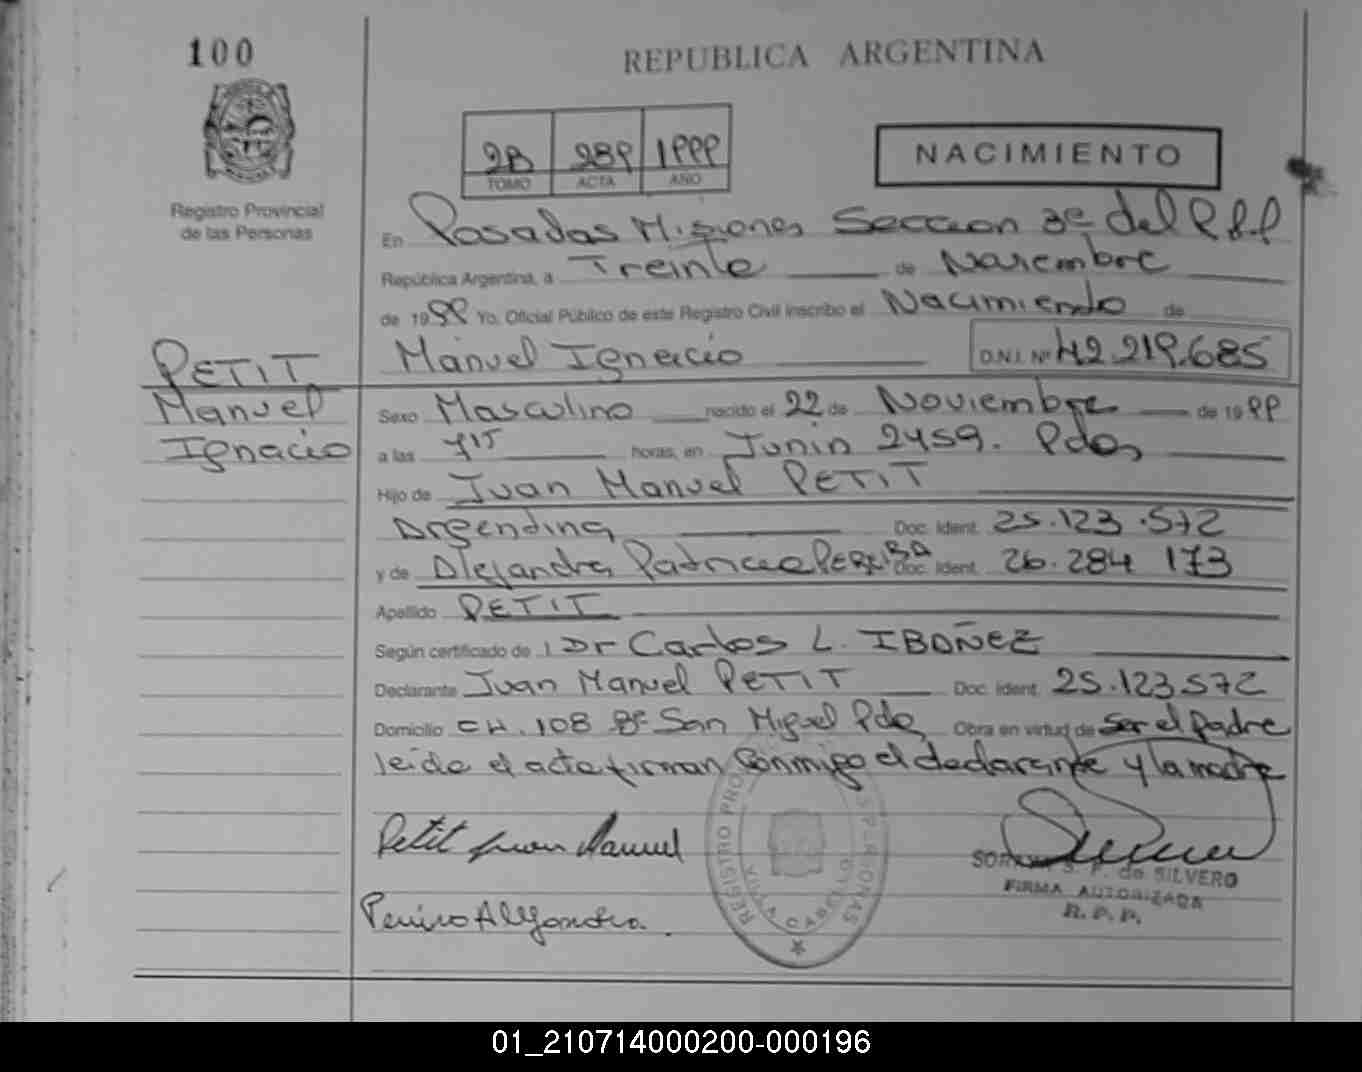 100
REPUBLICA ARGENTINA
2B 289 1999
TOMO ACTA AÑO
NACIMIENTO
Registro Provincial
de las Personas
En Posadas Misiones Seccion 3ª del R.P.P
República Argentina, a Treinta de Noviembre
de 1999 Yo, Oficial Público de este Registro Civil inscribo el Nacimiento de
Manuel Ignacio D.N.I. Nº 42.219.685
PETIT
Manuel
Ignacio
Sexo Masculino nacido el 22 de Noviembre de 1999
a las 7 15 horas, en Junin 2459. Pdas
Hijo de Juan Manuel PETIT
Argentina Doc. Ident. 25.123.572
y de Alejandra Patricia Doc. Ident. 26.284 173
Apellido PETIT
Según certificado de Dr Carlos L. IBAÑEZ
Declarante Juan Manuel PETIT Doc. Ident. 25.123572
Domicilio CH. 108 Bº San Miguel Pdas Obra en virtud de Ser el padre
leida el acta firman conmigo el declarante y la madre
Petit Juan Manuel
REGISTRO PERSONAS
SORAYA S. P. de SILVERO
FIRMA AUTORIZADA
R. P. P.
Alejandra.
01_210714000200-000196